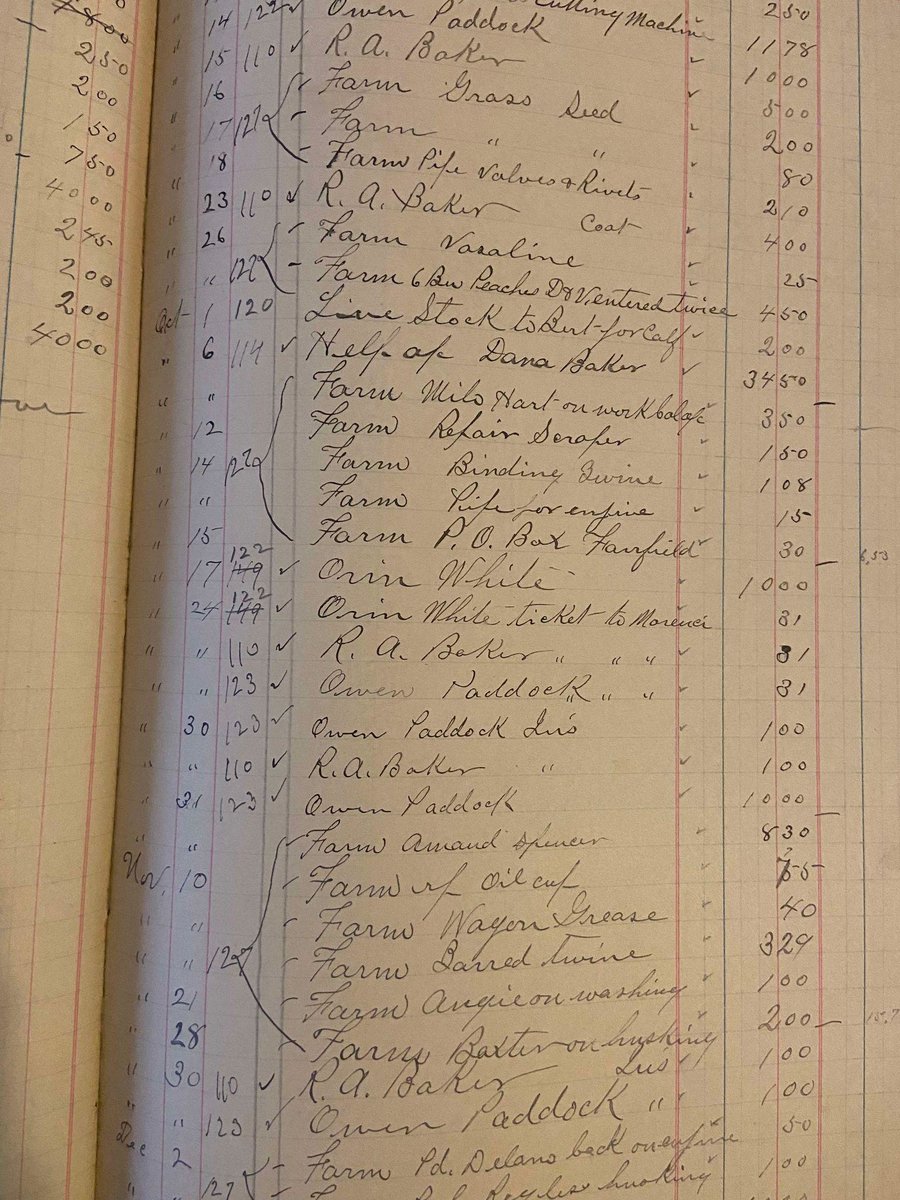 1800
250
200
150
750
4000
245
200
200
4000
" 14 122 ✓ Owen Paddock Cutting Machine ✓ 250
" 15 110 ✓ R. A. Baker ✓ 1178
" 16 Farm Grass Seed ✓ 1000
" 17 127 Farm " " ✓ 500
" 18 Farm Pipe Valves & Rivets ✓ 200
" 23 110 ✓ R. A. Baker Coat ✓ 80
" 26 Farm Vasaline ✓ 210
" " 127 Farm 6 Bu Peaches D&V, entered twice ✓ 400
25
Oct 1 120 Live Stock to Bert for Calf ✓ 450
" 6 114 ✓ Help of Dana Baker ✓ 200
" " Farm Milo Hart on work bal of ✓ 3450
" 12 Farm Repair Scraper ✓ 350
" 14 127 Farm Binding Twine ✓ 150
" " Farm Pipe for engine ✓ 108
" 15 Farm P. O. Box Fairfield ✓ 15
30 6,53
" 17 149 122 ✓ Orin White ✓ 1000
" 24 149 122 ✓ Orin White ticket to Morenci 31
" " 110 ✓ R. A. Baker " " " ✓ 31
" " 123 ✓ Owen Paddock " " " ✓ 31
" 30 123 ✓ Owen Paddock Ins ✓ 100
" " 110 ✓ R. A. Baker " ✓ 100
" 31 123 ✓ Owen Paddock ✓ 1000
" " Farm Amaud Spencer ✓ 830
Nov, 10 Farm rf Oil cup ✓ 55
" " Farm Wagon Grease ✓ 40
" " 127 Farm Barred twine ✓ 329
" 21 Farm Angie on washing ✓ 100
" 28 Farm Baxter on husking ✓ 200 15,7
" 30 110 ✓ R. A. Baker Ins ✓ 100
" " 123 ✓ Owen Paddock " ✓ 100
Dec 2 Farm Pd. Delano back on engine 50
127 husking ✓ 100